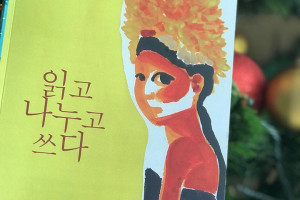 읽고
나누고
쓰다